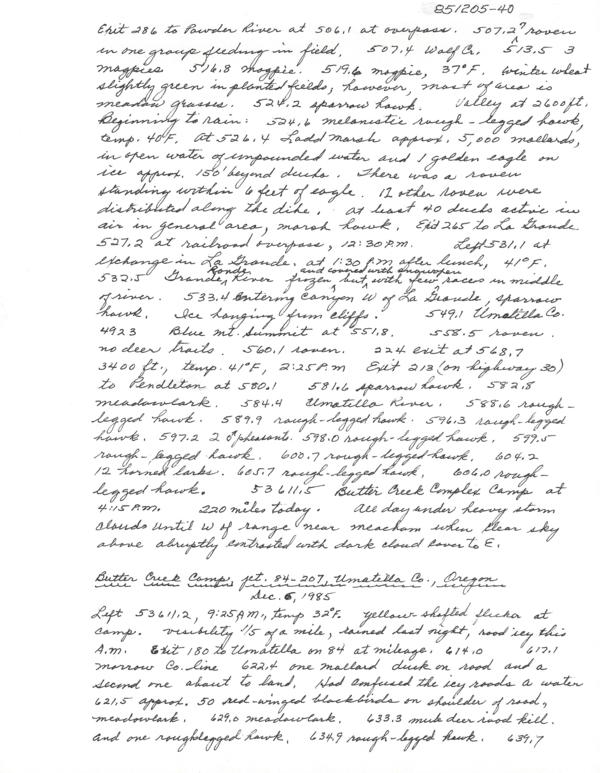 851205-40
Exit 286 to Powder River at 506.1 at overpass. 507.2 7 raven
in one group feeding in field. 507.4 Wolf Cr. 513.5 3
magpies 516.8 magpie. 519.6 magpie, 37°F. Winter wheat
slightly green in planted fields, however, most of area is
meadow grasses. 524.2 sparrow hawk. Valley at 2600 ft.
Beginning to rain: 524.6 melanistic rough-legged hawk,
temp. 40F. At 526.4 Ladd Marsh approx. 5,000 mallards,
in open water of impounded water and 1 golden eagle on
ice approx. 150' beyond ducks. There was a raven
standing within 6 feet of eagle. 12 other raven were
distributed along the dike. At least 40 ducks active in
air in general area, marsh hawk. Exit 265 to La Grande
527.2 at railroad overpass, 12:30 P.M. Left 531.1 at
exchange in La Grande. at 1:30 P.M. after lunch, 41°F.
532.5 Grande Ronde River frozen and covered with snow but, with few races in middle
of river. 533.4 entering canyon W of La Grande, sparrow
hawk. Ice hanging from cliffs. 549.1 Umatilla Co.
4923 Blue Mt. Summit at 551.8. 558.5 raven.
no deer trails. 560.1 raven. 224 exit at 568.7
3400 ft., temp. 41°F, 2:25 P.M Exit 213 (on highway 30)
to Pendleton at 580.1 581.6 sparrow hawk. 582.8
meadowlark. 584.4 Umatilla River. 588.6 rough-
legged hawk. 589.9 rough-legged hawk. 596.3 rough-legged
hawk. 597.2 2 ♂ pheasants. 598.0 rough-legged hawk. 599.5
rough-legged hawk. 600.7 rough-legged hawk. 604.2
12 horned larks. 605.7 rough-legged hawk. 606.0 rough-
legged hawk. 53611.5 Butter Creek Complex Camp at
4:15 P.M. 220 miles today. All day under heavy storm
clouds until W of range near Meacham when clear sky
above abruptly contrasted with dark cloud cover to E.
Butter Creek Camp, jct. 84-207, Umatilla Co., Oregon
Dec. 6, 1985
Left 53611.2, 9:25 A.M., temp 32°F. yellow shafted flicker at
camp. visibility 1/5 of a mile, rained last night, road icy this
A.m. Exit 180 to Umatilla on 84 at mileage. 614.0 617.1
Morrow Co. line 622.4 one mallard duck on road and a
second one about to land. Had confused the icy roads a water
621.5 approx. 50 red-winged blackbirds on shoulder of road,
meadowlark. 629.0 meadowlark. 633.3 mule deer road kill.
and one roughlegged hawk. 634.9 rough-legged hawk. 639.7